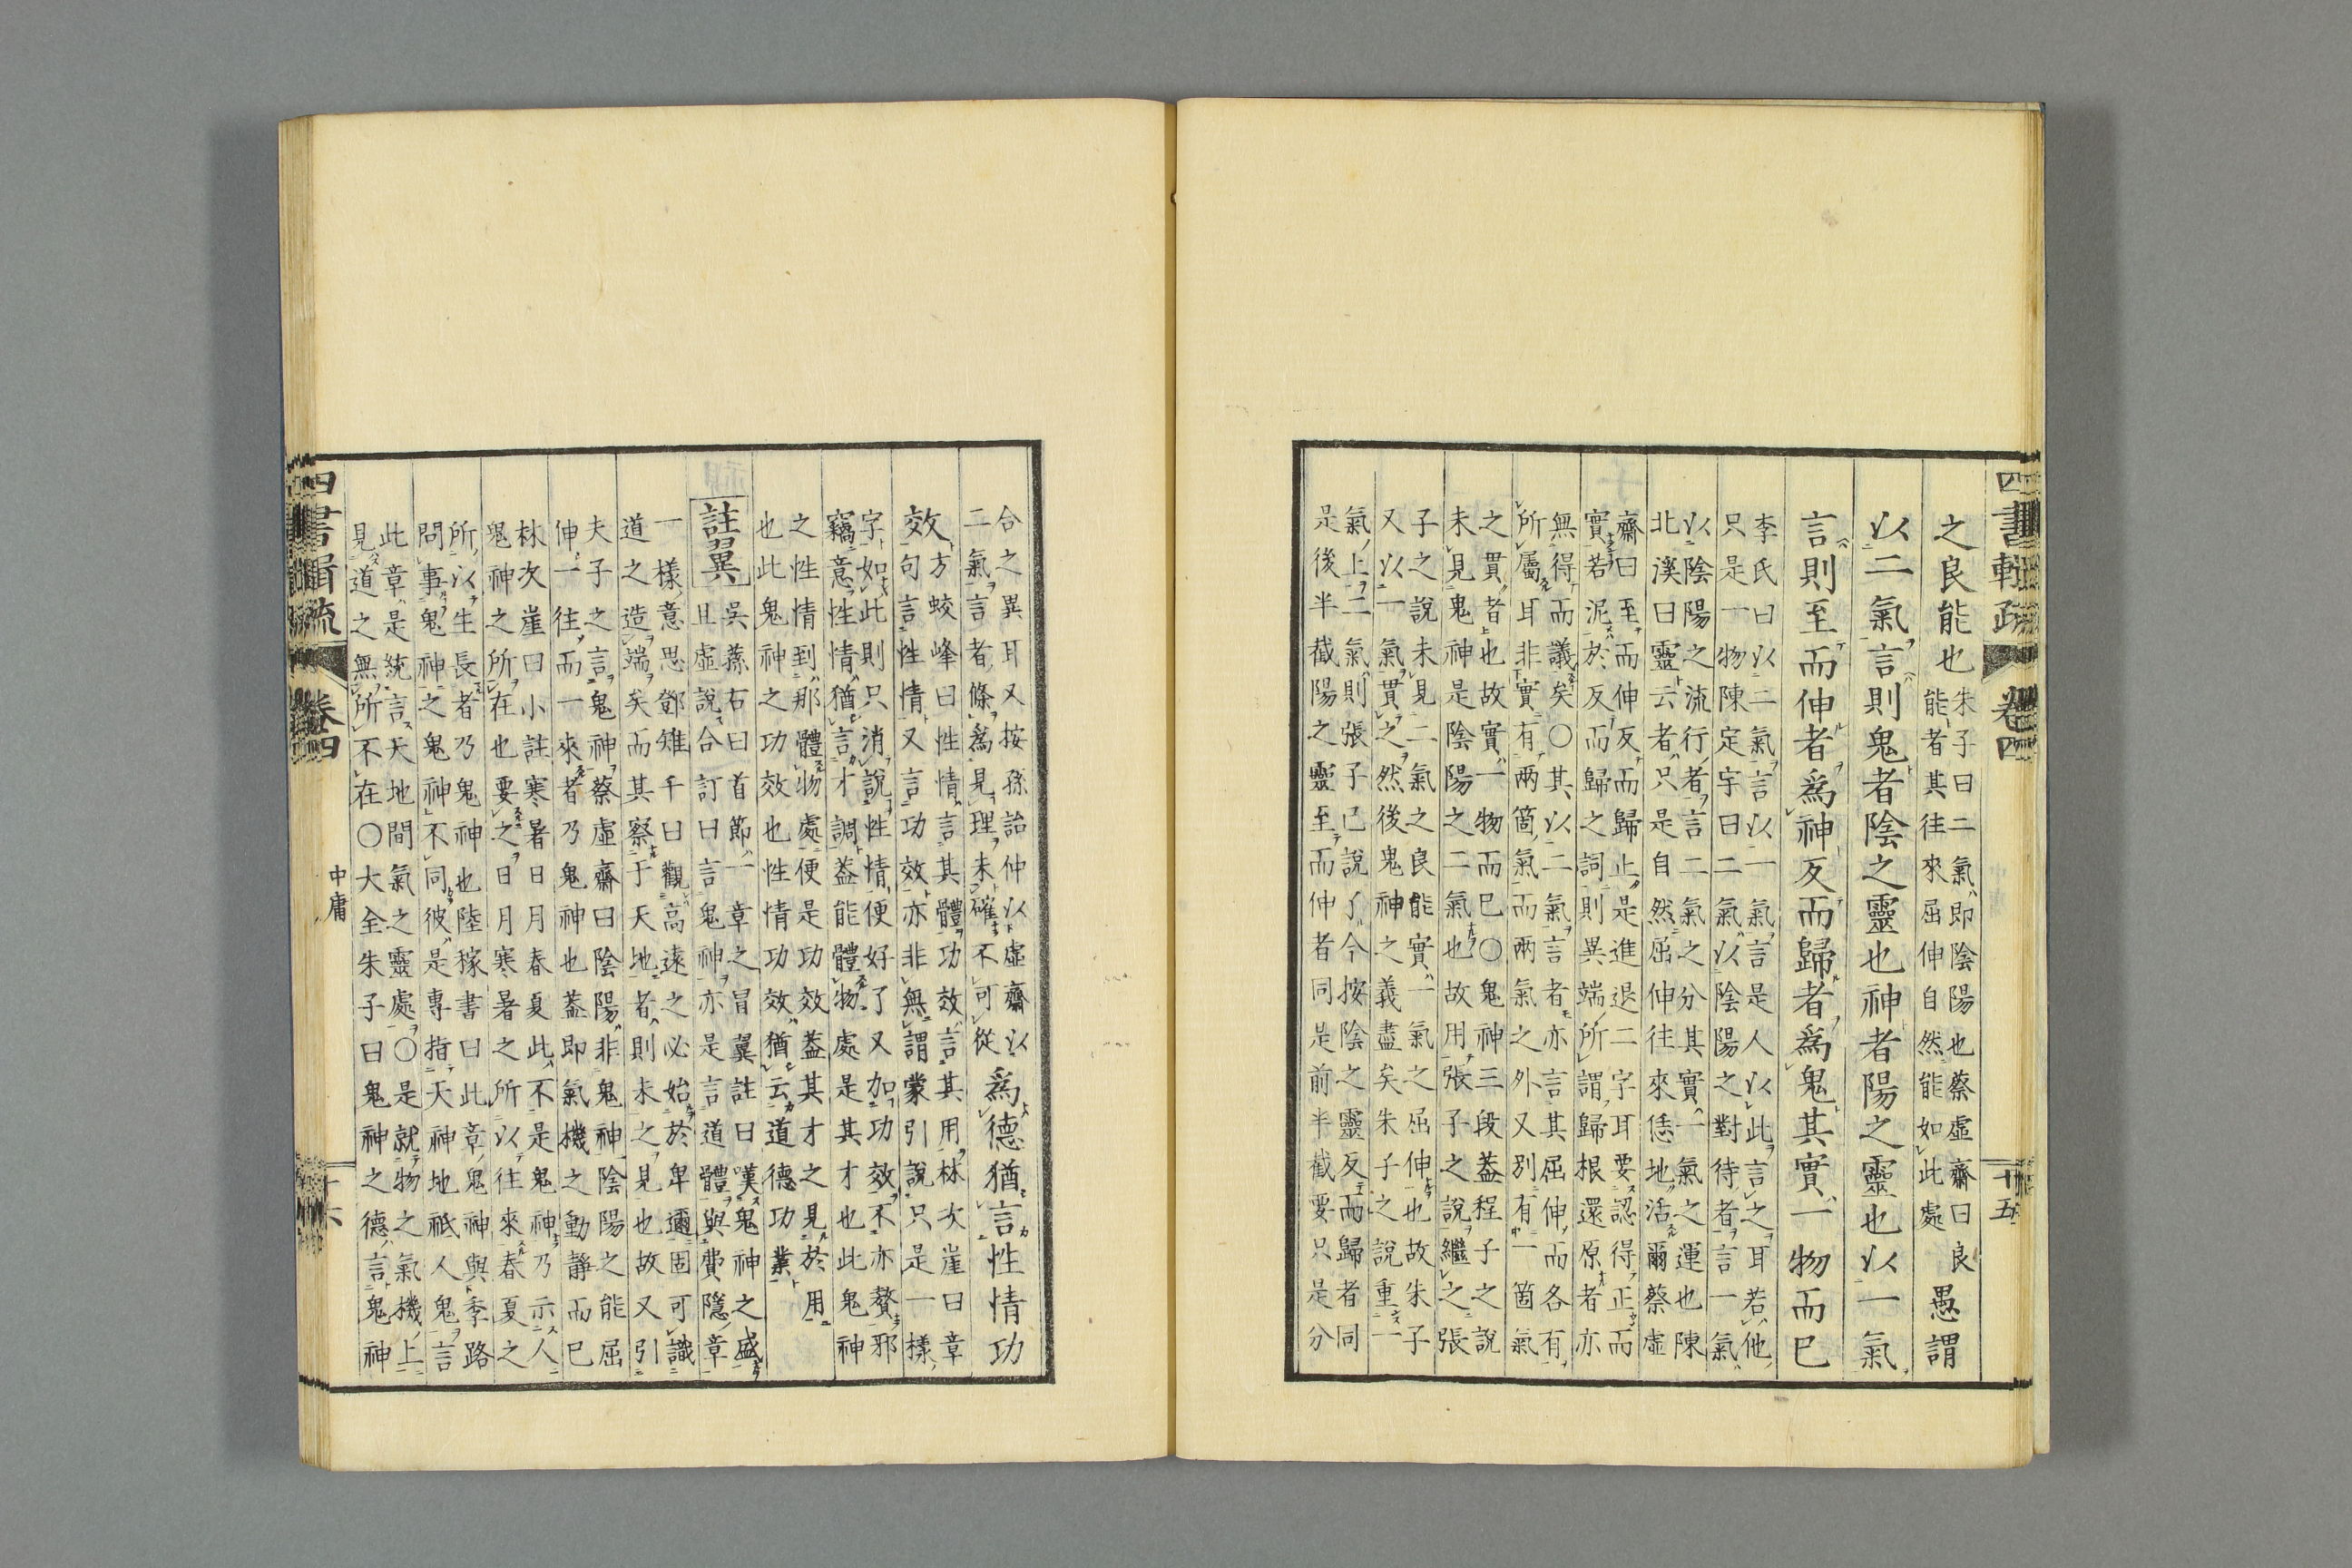 四書輯疏
卷四
十五
之良能也
朱子曰二氣即陰陽也蔡虛齋曰良
能者其往來屈伸自然能如此處
愚謂
以二氣言則鬼者陰之靈也神者陽之靈也以一氣
言則至而伸者爲神反而歸者爲鬼其實一物而已
李氏曰以二氣言以一氣言是人以此言之耳若他
只是一物陳定宇曰二氣以陰陽之對待者言一氣
以陰陽之流行者言二氣之分其實一氣之運也陳
北溪曰靈云者只是自然屈伸往來恁地活爾蔡虛
齋曰至而伸反而歸止是進退二字耳要認得正而
實若泥於反而歸之詞則異端所謂歸根還原者亦
無得而議矣○其以二氣言者亦言其屈伸而各有
所屬耳非實有兩箇氣而兩氣之外又別有一箇氣
之貫者也故實一物而已○鬼神三段蓋程子之說
未見鬼神是陰陽之二氣也故用張子之說繼之張
子之說未見二氣之良能實一氣之屈伸也故朱子
又以一氣貫之然後鬼神之義盡矣朱子之說重一
氣上二氣則張子已說了今按陰之靈反而歸者同
是後半截陽之靈至而伸者同是前半截要只是分
合之異耳又按孫詒仲以虛齋以
二氣言者條爲見理未確不可從
爲德猶言性情功
效
方蛟峰曰性情言其體功效言其用林次崖曰章
句言性情又言功效亦非無謂蒙引說只是一樣
字如此則只消說性情便好了又加功效不亦贅邪
竊意性情猶言才調蓋能體物處是其才也此鬼神
之性情到那體物處便是功效蓋其才之見於用
也此鬼神之功效也性情功效猶云道德功業
註翼
吳蓀右曰首節一章之冒翼註曰嘆鬼神之盛
且虛說合訂曰言鬼神亦是言道體與費隱章
一樣意思鄧雉千曰觀高遠之必始於卑邇固可識
道之造端矣而其察于天地者則未之見也故又引
夫子之言鬼神蔡虛齋曰陰陽非鬼神陰陽之能屈
伸一往而一來者乃鬼神也蓋即氣機之動靜而已
林次崖曰小註寒暑日月春夏此不是鬼神乃示人
鬼神之所在也要之日月寒暑之所以往來春夏之
所以生長者乃鬼神也陸稼書曰此章鬼神與季路
問事鬼神之鬼神不同彼是專指天神地祇人鬼言
此章是統言天地間氣之靈處○是就物之氣機上
見道之無所不在○大全朱子曰鬼神之德言鬼神
中庸
四書輯疏
卷四